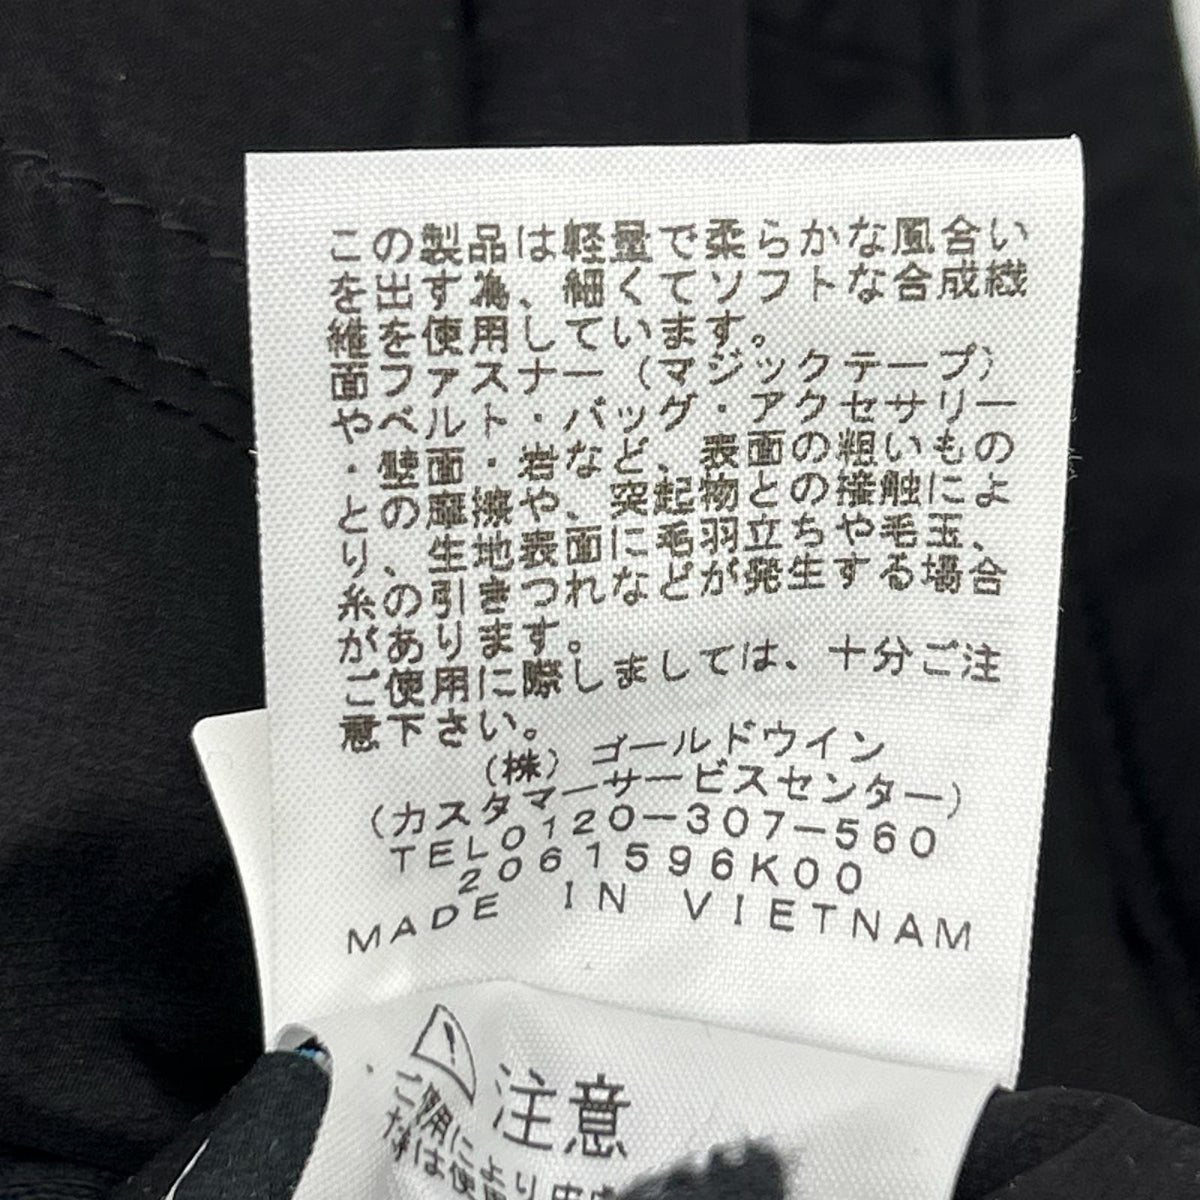 この製品は軽量で柔らかな風合い
を出す為、細くてソフトな合成繊
維を使用しています。
面ファスナー（マジックテープ）
やベルト・バッグ・アクセサリー
・壁面・岩など、表面の粗いもの
との摩擦や、突起物との接触によ
り、生地表面に毛羽立ちや毛玉、
糸の引きつれなどが発生する場合
があります。
ご使用に際しましては、十分ご注
意下さい。
（株）ゴールドウイン
（カスタマーサービスセンター）
TEL0120-307-560
2061596K00
MADE IN VIETNAM
注意
ご使用により